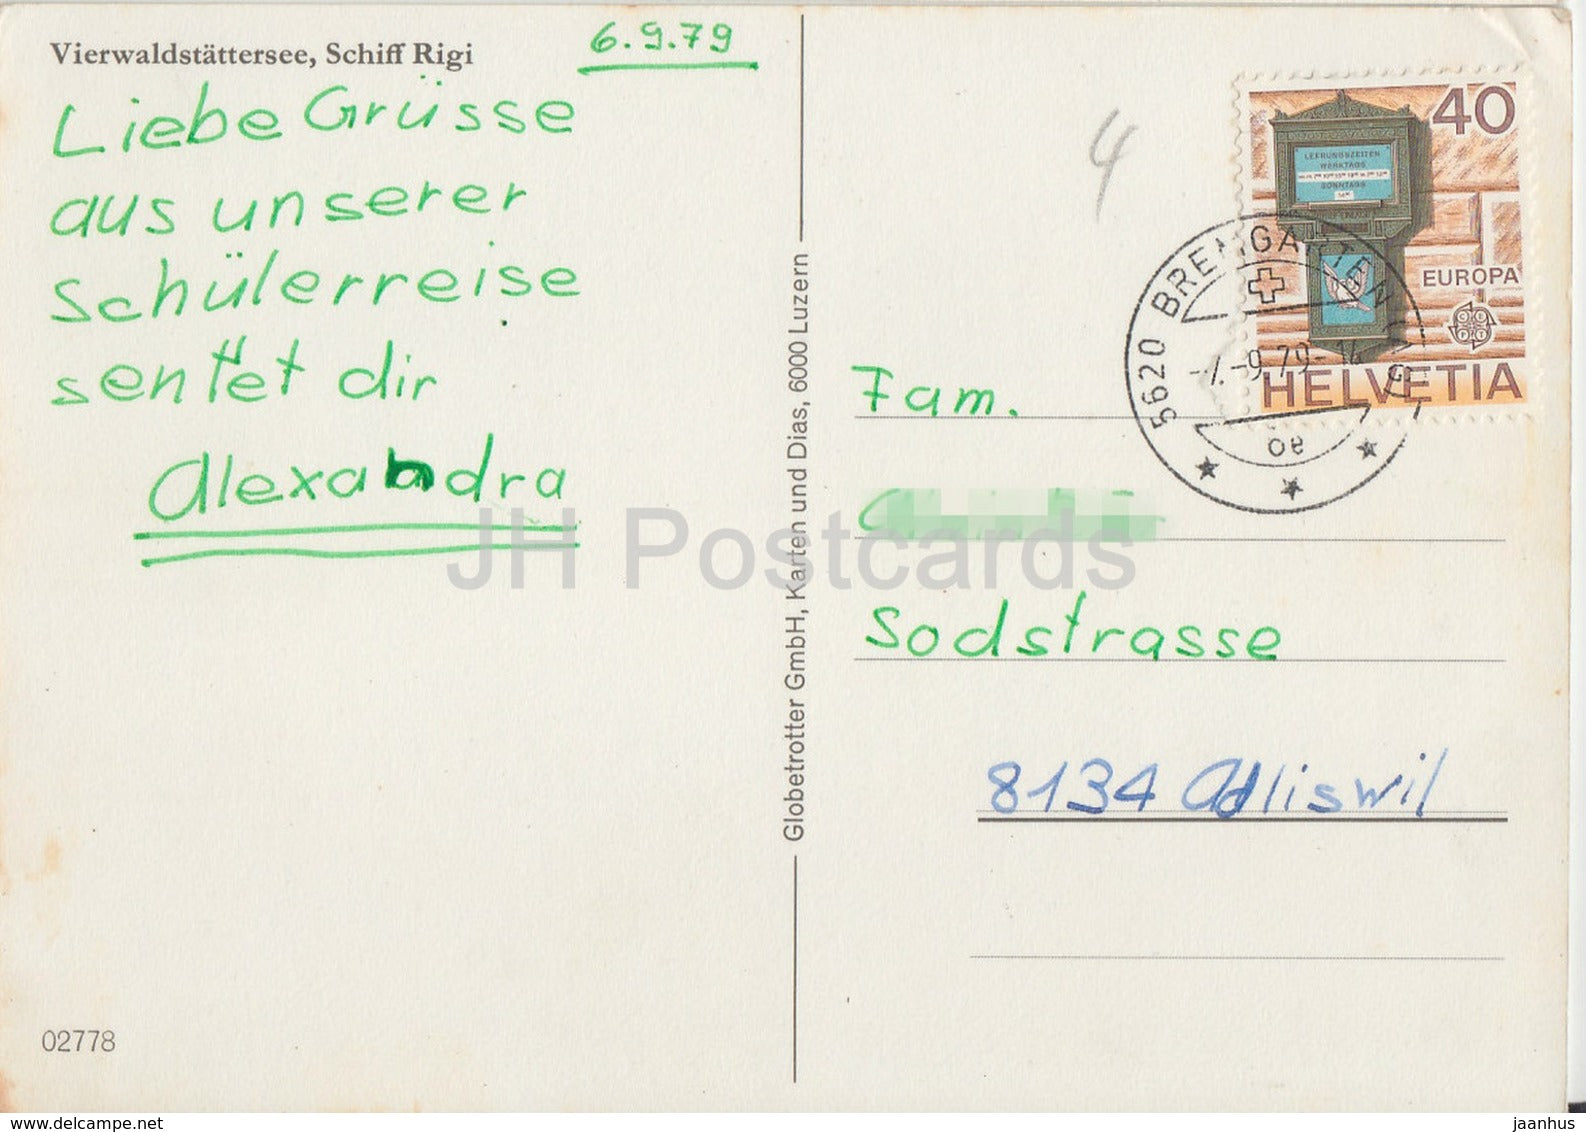 Vierwaldstättersee, Schiff Rigi
6.9.79
Liebe Grüsse
aus unserer
Schülerreise
sentet dir
Alexandra
02778
Globetrotter GmbH, Karten und Dias, 6000 Luzern
4
40
LEERUNGSZEITEN
WERKTAGS
SONNTAGS
EUROPA
CEPT
HELVETIA
5620 BREMGARTEN
-7.-9.79-14
Fam.
Sodstrasse
8134 Adliswil
JH Postcards
www.delcampe.net
jaanhus